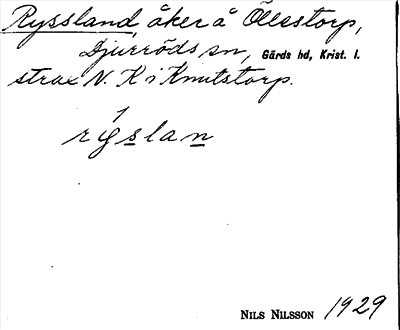 Ryssland, åker å Ollestorp,
Djurröds sn, Gärds hd, Krist. l.
strax N. K i Knutstorp.
rýslan
NILS NILSSON 1929